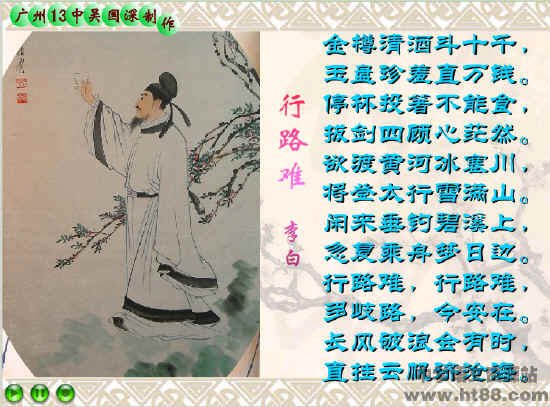 广州13中吴国深制作
行路难
李白
金樽清酒斗十千，
玉盘珍羞直万钱。
停杯投箸不能食，
拔剑四顾心茫然。
欲渡黄河冰塞川，
将登太行雪满山。
闲来垂钓碧溪上，
忽复乘舟梦日边。
行路难，行路难，
多岐路，今安在。
长风破浪会有时，
直挂云帆济沧海。
www.ht88.com